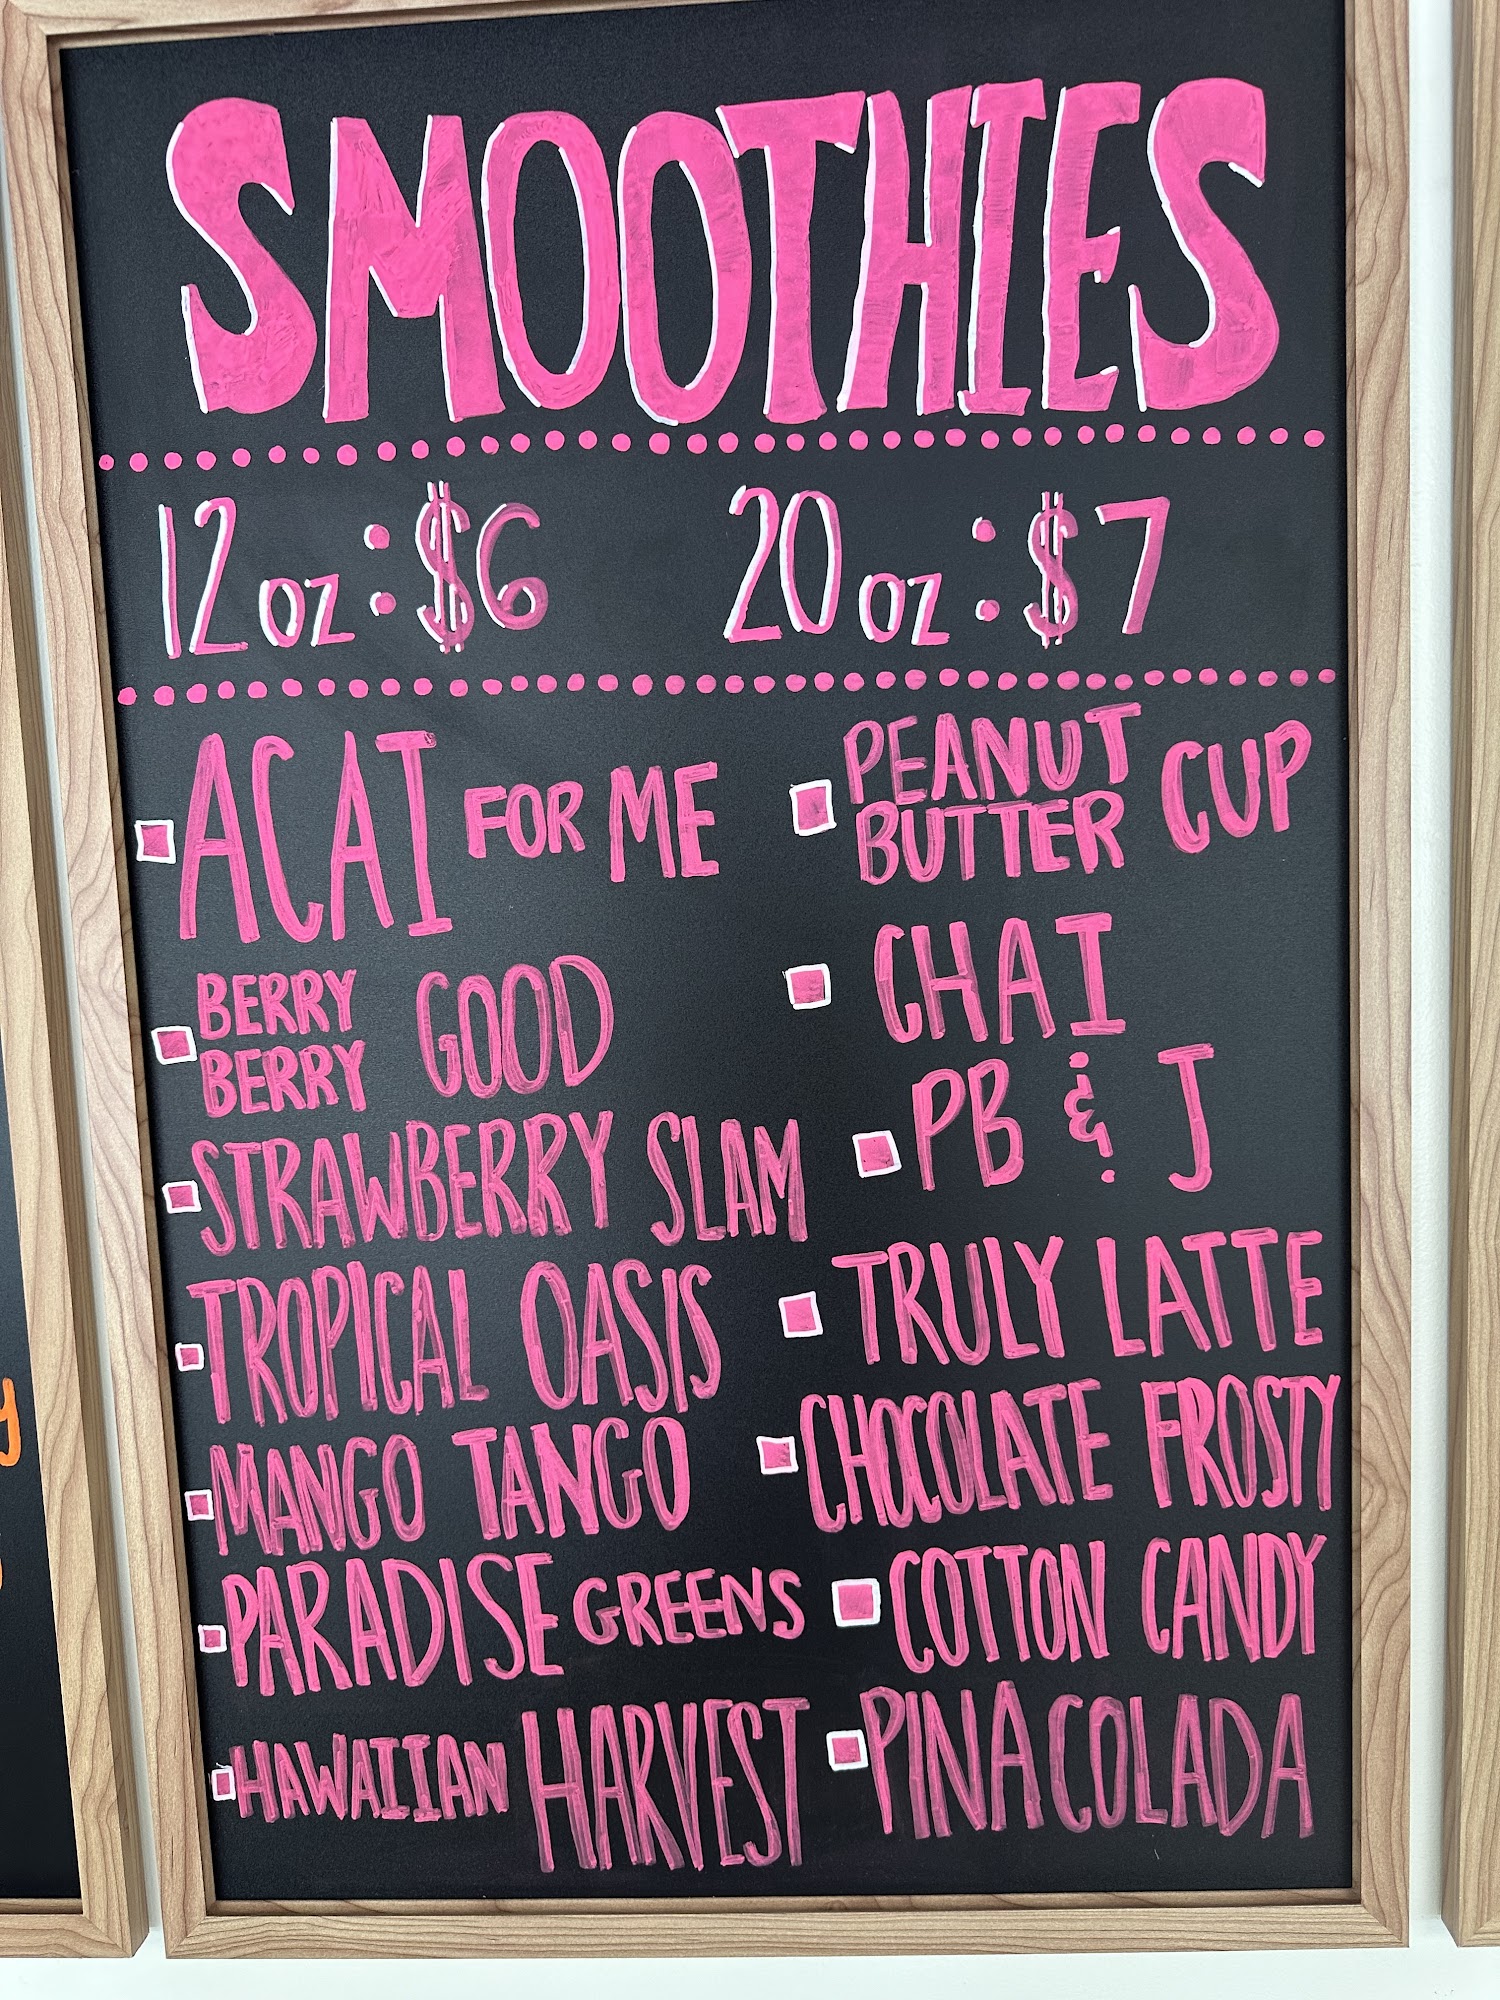 SMOOTHIES
12 oz : $6 20 oz : $7
ACAI FOR ME
BERRY BERRY GOOD
STRAWBERRY SLAM
TROPICAL OASIS
MANGO TANGO
PARADISE GREENS
HAWAIIAN HARVEST
PEANUT BUTTER CUP
CHAI
PB & J
TRULY LATTE
CHOCOLATE FROSTY
COTTON CANDY
PINA COLADA